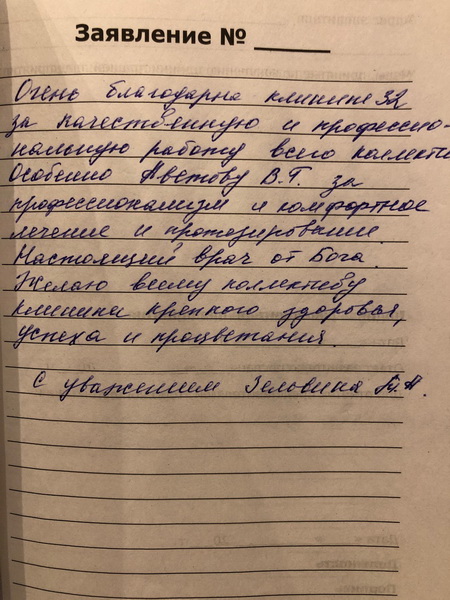 Заявление № ______
Очень благодарна клинике 32
за качественную и профессио-
нальную работу всего коллекти
Особенно Аветову В.Г. за
профессионализм и комфортное
лечение и протезирование.
Настоящий врач от Бога.
Желаю всему коллективу
клиники крепкого здоровья,
успеха и процветания
С уважением Зельвина